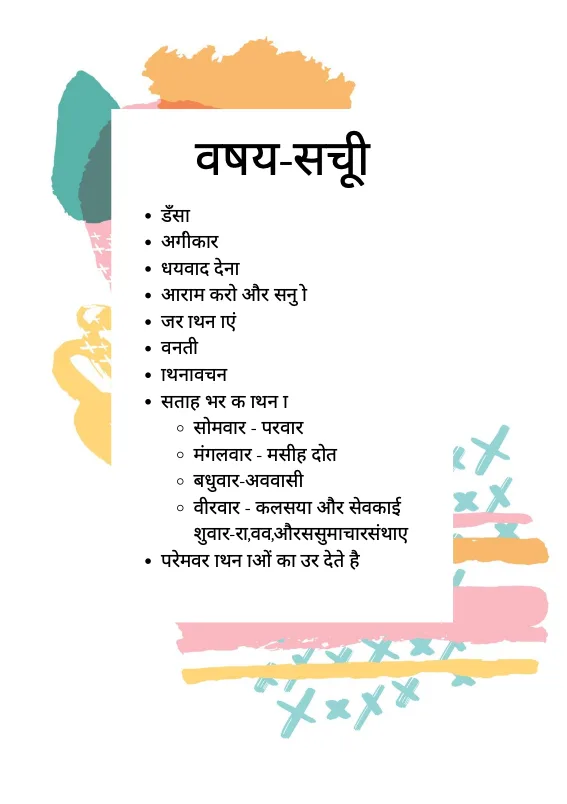 वषय-सचूी
डँसा
अगीकार
धयवाद देना
आराम करो और सनु ो
जर ाथन ाएं
वनती
ाथनावचन
सताह भर क ाथन ा
सोमवार - परवार
मंगलवार - मसीह दोत
बधुवार-अववासी
वीरवार - कलसया और सेवकाई
शुवार-रा,वव,औरससुमाचारसंथाए
परेमवर ाथन ाओं का उर देते है